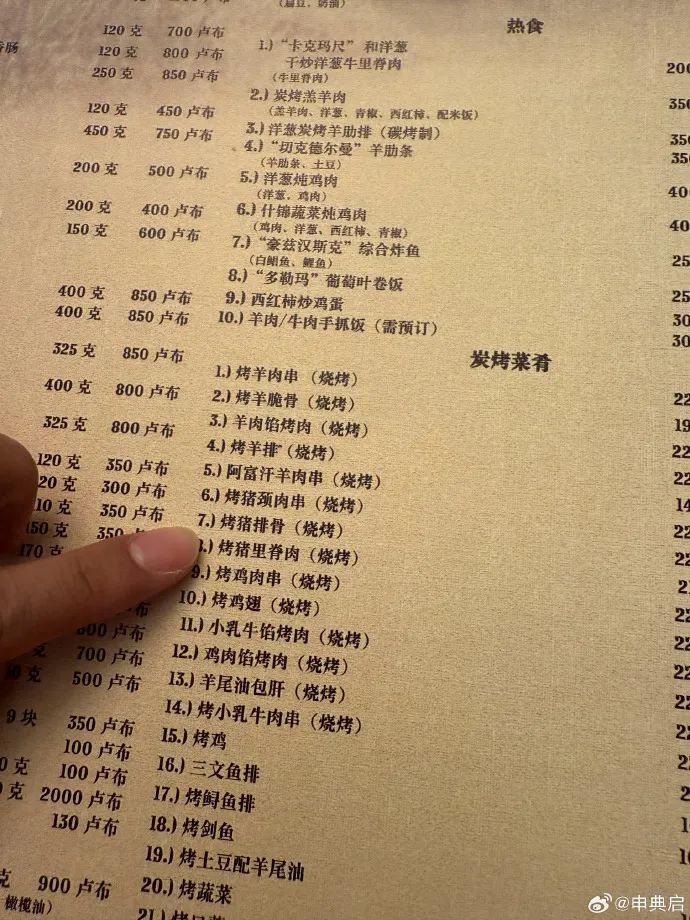 （扁豆、奶油）
热食
120 克 700 卢布
120 克 800 卢布
250 克 850 卢布
120 克 450 卢布
450 克 750 卢布
200 克 500 卢布
200 克 400 卢布
150 克 600 卢布
400 克 850 卢布
400 克 850 卢布
325 克 850 卢布
400 克 800 卢布
325 克 800 卢布
120 克 350 卢布
20 克 300 卢布
10 克 350 卢布
150 克 350 卢布
170 克
卢布
800 卢布
700 卢布
克 500 卢布
9 块 350 卢布
100 卢布
克 100 卢布
克 2000 卢布
130 卢布
克 900 卢布
橄榄油）
香肠
1.) “卡克玛尺” 和洋葱
干炒洋葱牛里脊肉
（牛里脊肉）
2.) 炭烤羔羊肉
（羔羊肉、洋葱、青椒、西红柿、配米饭）
3.) 洋葱炭烤羊肋排（碳烤制）
4.) “切克德尔曼” 羊肋条
（羊肋条、土豆）
5.) 洋葱炖鸡肉
（洋葱，鸡肉）
6.) 什锦蔬菜炖鸡肉
（鸡肉、洋葱、西红柿、青椒）
7.) “豪兹汉斯克” 综合炸鱼
（白鲳鱼、鲤鱼）
8.) “多勒玛” 葡萄叶卷饭
9.) 西红柿炒鸡蛋
10.) 羊肉/牛肉手抓饭（需预订）
炭烤菜肴
1.) 烤羊肉串（烧烤）
2.) 烤羊脆骨（烧烤）
3.) 羊肉馅烤肉（烧烤）
4.) 烤羊排（烧烤）
5.) 阿富汗羊肉串（烧烤）
6.) 烤猪颈肉串（烧烤）
7.) 烤猪排骨（烧烤）
8.) 烤猪里脊肉（烧烤）
9.) 烤鸡肉串（烧烤）
10.) 烤鸡翅（烧烤）
11.) 小乳牛馅烤肉（烧烤）
12.) 鸡肉馅烤肉（烧烤）
13.) 羊尾油包肝（烧烤）
14.) 烤小乳牛肉串（烧烤）
15.) 烤鸡
16.) 三文鱼排
17.) 烤鲟鱼排
18.) 烤剑鱼
19.) 烤土豆配羊尾油
20.) 烤蔬菜
21.)
200
350
350
350
400
400
250
250
300
300
@申典启